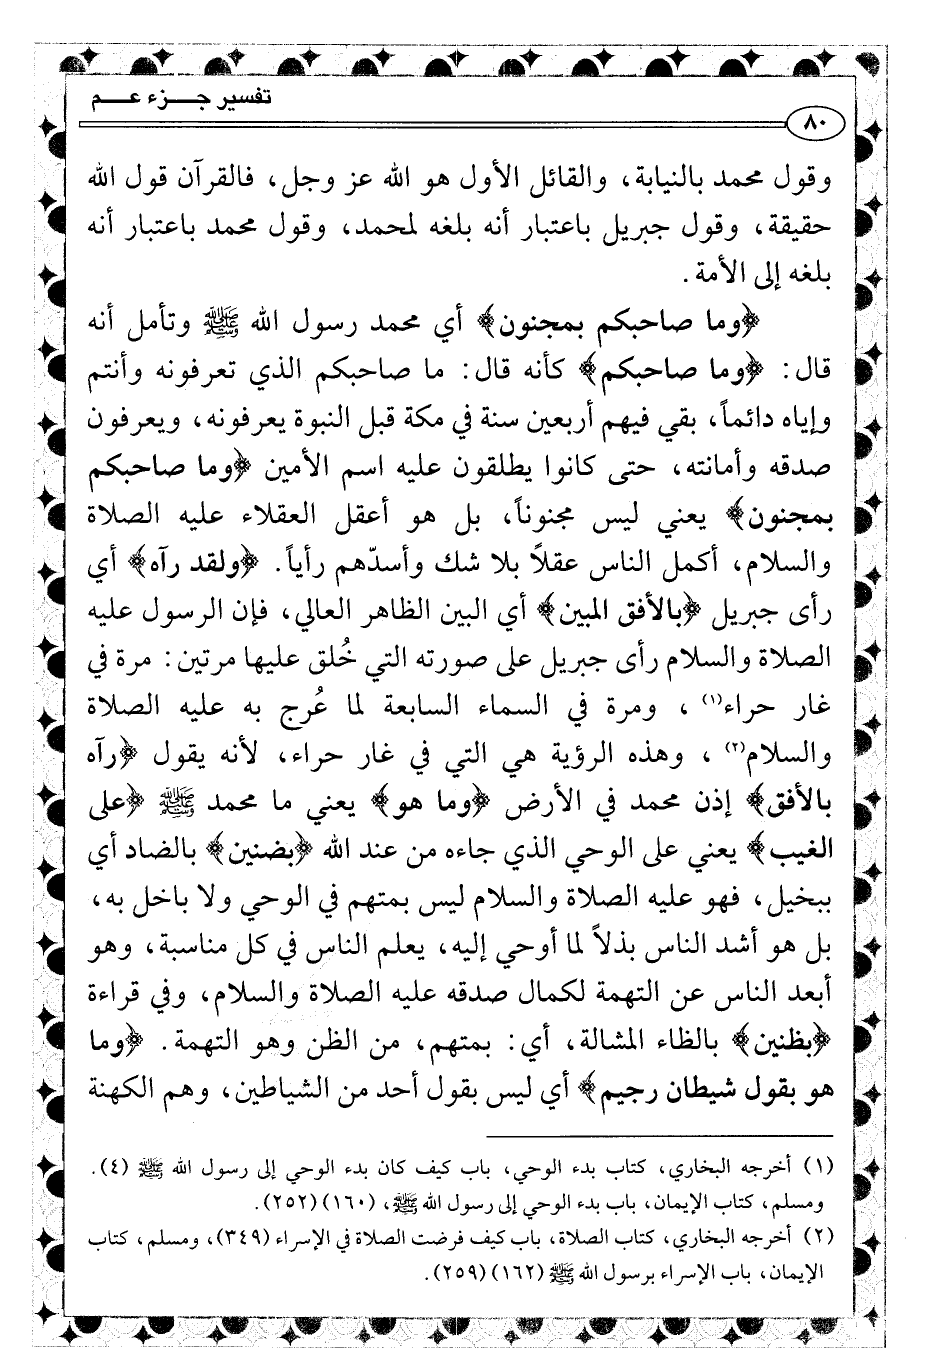 تفسير جـــزء عـــم
٨٠
وقول محمد بالنيابة، والقائل الأول هو الله عز وجل، فالقرآن قول الله
حقيقة، وقول جبريل باعتبار أنه بلغه لمحمد، وقول محمد باعتبار أنه
بلغه إلى الأمة.
﴿وما صاحبكم بمجنون﴾ أي محمد رسول الله ﷺ وتأمل أنه
قال: ﴿وما صاحبكم﴾ كأنه قال: ما صاحبكم الذي تعرفونه وأنتم
وإياه دائماً، بقي فيهم أربعين سنة في مكة قبل النبوة يعرفونه، ويعرفون
صدقه وأمانته، حتى كانوا يطلقون عليه اسم الأمين ﴿وما صاحبكم
بمجنون﴾ يعني ليس مجنوناً، بل هو أعقل العقلاء عليه الصلاة
والسلام، أكمل الناس عقلاً بلا شك وأسدّهم رأياً. ﴿ولقد رآه﴾ أي
رأى جبريل ﴿بالأفق المبين﴾ أي البين الظاهر العالي، فإن الرسول عليه
الصلاة والسلام رأى جبريل على صورته التي خُلق عليها مرتين: مرة في
غار حراء(١)، ومرة في السماء السابعة لما عُرج به عليه الصلاة
والسلام(٢)، وهذه الرؤية هي التي في غار حراء، لأنه يقول ﴿رآه
بالأفق﴾ إذن محمد في الأرض ﴿وما هو﴾ يعني ما محمد ﷺ ﴿على
الغيب﴾ يعني على الوحي الذي جاءه من عند الله ﴿بضنين﴾ بالضاد أي
ببخيل، فهو عليه الصلاة والسلام ليس بمتهم في الوحي ولا باخل به،
بل هو أشد الناس بذلاً لما أوحي إليه، يعلم الناس في كل مناسبة، وهو
أبعد الناس عن التهمة لكمال صدقه عليه الصلاة والسلام، وفي قراءة
﴿بظنين﴾ بالظاء المشالة، أي: بمتهم، من الظن وهو التهمة. ﴿وما
هو بقول شيطان رجيم﴾ أي ليس بقول أحد من الشياطين، وهم الكهنة
(١) أخرجه البخاري، كتاب بدء الوحي، باب كيف كان بدء الوحي إلى رسول الله ﷺ (٤).
ومسلم، كتاب الإيمان، باب بدء الوحي إلى رسول الله ﷺ، (١٦٠) (٢٥٢).
(٢) أخرجه البخاري، كتاب الصلاة، باب كيف فرضت الصلاة في الإسراء (٣٤٩)، ومسلم، كتاب
الإيمان، باب الإسراء برسول الله ﷺ (١٦٢) (٢٥٩).